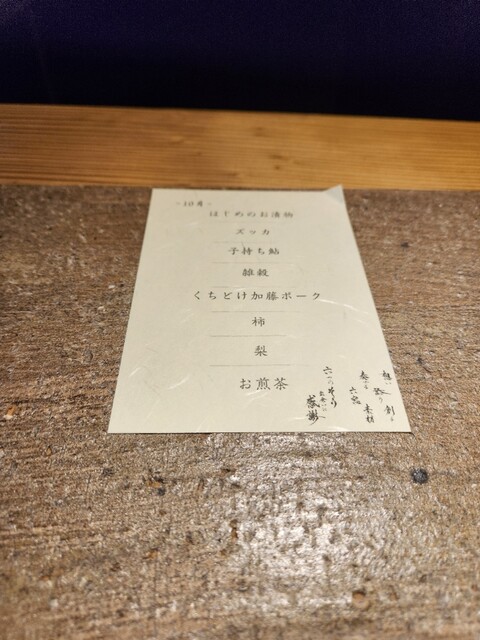 -10月-
はじめのお漬物
ズッカ
子持ち鮎
雑穀
くちどけ加藤ポーク
柿
梨
お煎茶
感謝